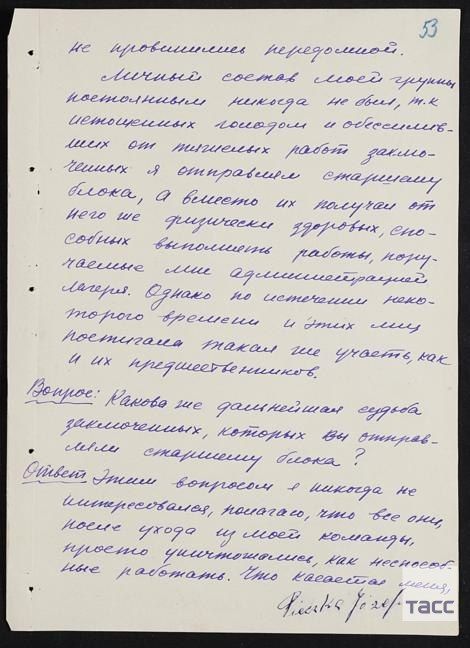 53
не провинились передомной.
Личный состав моей группы
постоянным никогда не был, т.к
истощенных голодом и обессилив-
ших от тяжелых работ заклю-
ченных я отправлял старшему
блока, а вместо их получал от
него же физически здоровых, спо-
собных выполнять работы, пору-
чаемые мне администрацией
лагеря. Однако по истечении неко-
торого времени и этих лиц
постигала такая же участь, как
и их предшественников.
Вопрос: Какова же дальнейшая судьба
заключенных, которых вы отправ-
ляли старшему блока?
Ответ: Этим вопросом я никогда не
интересовался, полагаю, что все они,
после ухода из моей команды,
просто уничтожались, как неспособ-
ные работать. Что касается меня,
Józef
ТАСС